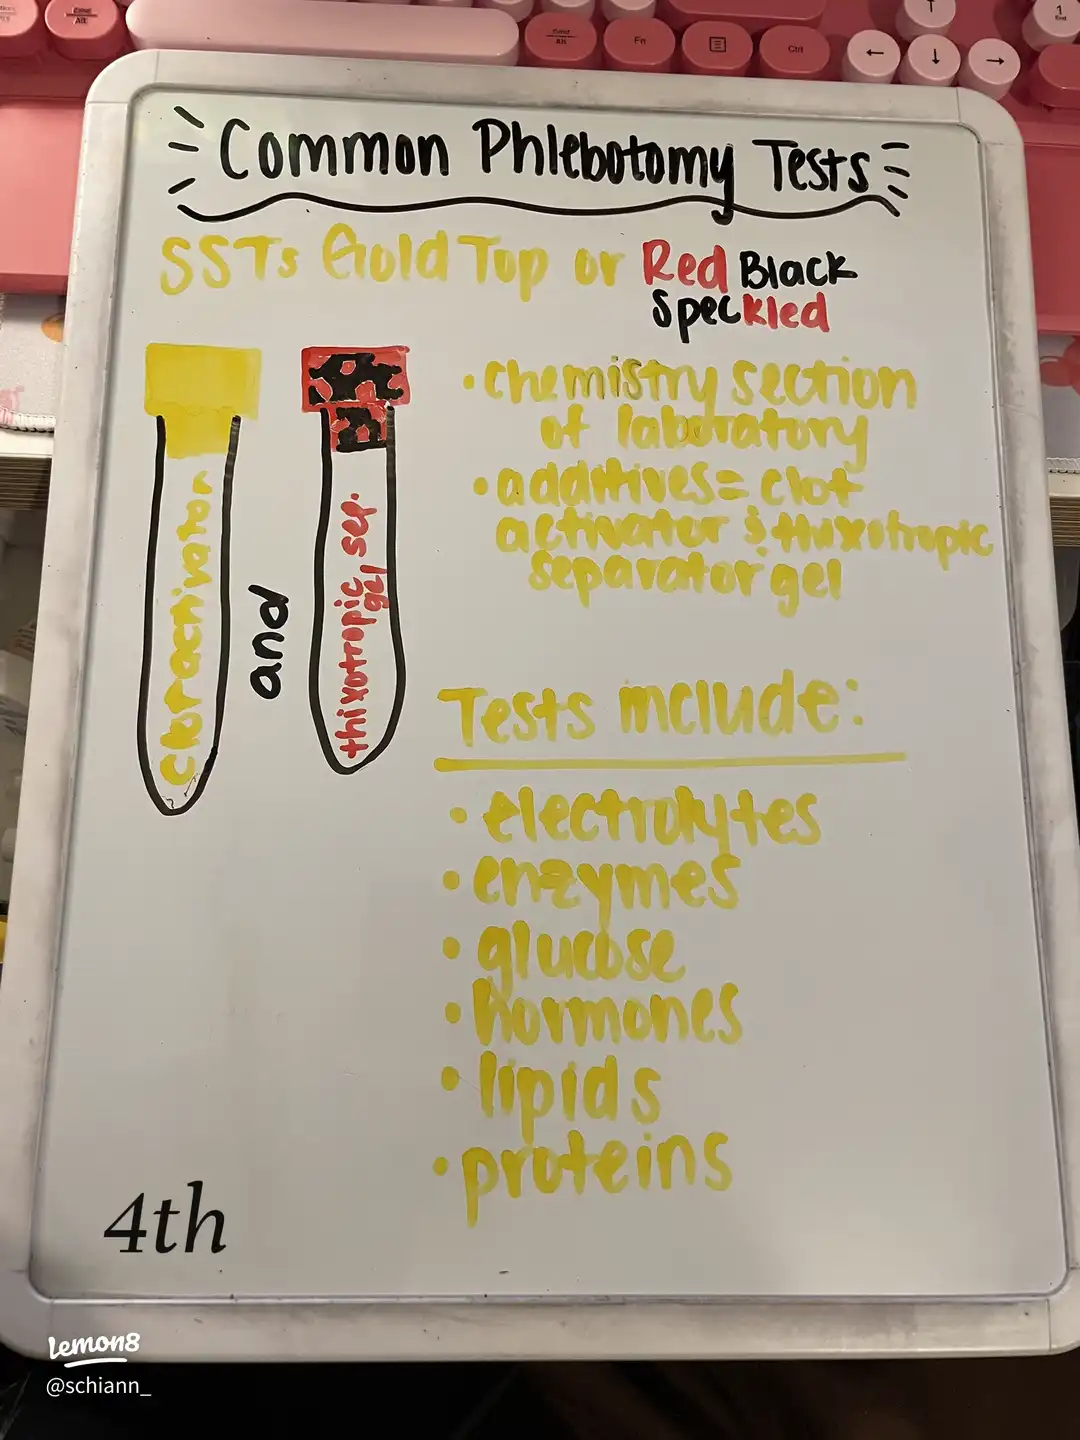 Cmd
Alt
Cmd
alt
Fn
Ctrl
↑
1
End
←
↓
→
Common Phlebotomy Tests
SSTs Gold Top or Red Black
Speckled
• chemistry section
of laboratory
• additives = clot
activator & thixotropic
separator gel
clot activator
and
thixotropic
gel sep.
Tests include:
• electrolytes
• enzymes
• glucose
• hormones
• lipids
• proteins
4th
Lemon8
@schiann_